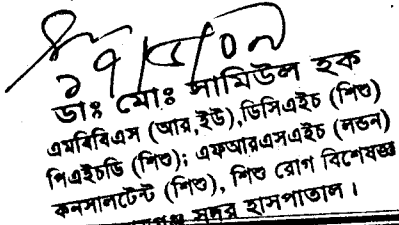 ১৭/৫/০৭
ডাঃ মোঃ সামিউল হক
এমবিবিএস (আর,ইউ),ডিসিএইচ (শিশু)
পিএইচডি (শিশু); এফআরএসএইচ (লন্ডন)
কনসালটেন্ট (শিশু), শিশু রোগ বিশেষজ্ঞ
সদর হাসপাতাল।